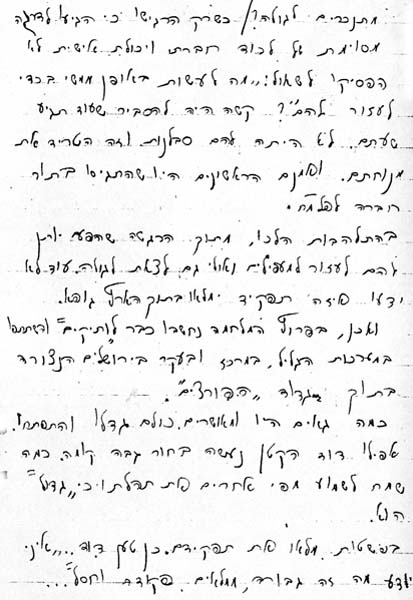 מתנכרים לגולה?) כשרק הרגישו כי הגיעו לדרגה
מסוימת של לכוד חברתי ויכולת אישית לא
הפסיקו לשאול: "מה לעשות באופן ממשי בכדי
לעזור להם"? קשה היה להסביר שעוד תגיע
שעתם. לא היתה להם סבלנות וזה הטריד את
מנוחתם. ואמנם הראשונים היו שהתגיסו בתור
חברה לפלמ"ח.
בהתלהבות הלכו, מתוך הרגשה שהפעם ינתן
להם לעזור למעפילים ואולי גם לצאת לגולה. עוד לא
ידעו איזה תפקיד ימלאו בתוך הארץ גופא.
ואכן, בפרוץ המלחמה נחשבו כבר "לותיקים" והשתתפו
במערכות הגליל, במרכז ובעקר בירושלים הנצורה
בתוך גדוד "הפורצים".
כמה גאים היו ומאושרים. כולם גדלו והתפתחו.
אפילו דוד הקטן נעשה בחור גבה קומה. כמה
שמח לשמוע מפי אחרים את תהלתו כי "גדול"
הוא.
בפשטות מלאו את תפקידם. כן טען דוד... "איני
יודע מה זה גבורה, ממלאים פקודה וחסל"...